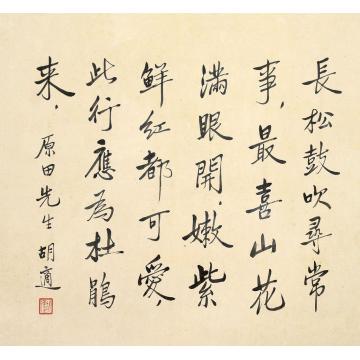 長松鼓吹尋常
事，最喜山花
滿眼開，嫩紫
鮮紅都可愛，
此行應為杜鵑
来，
原田先生 胡適